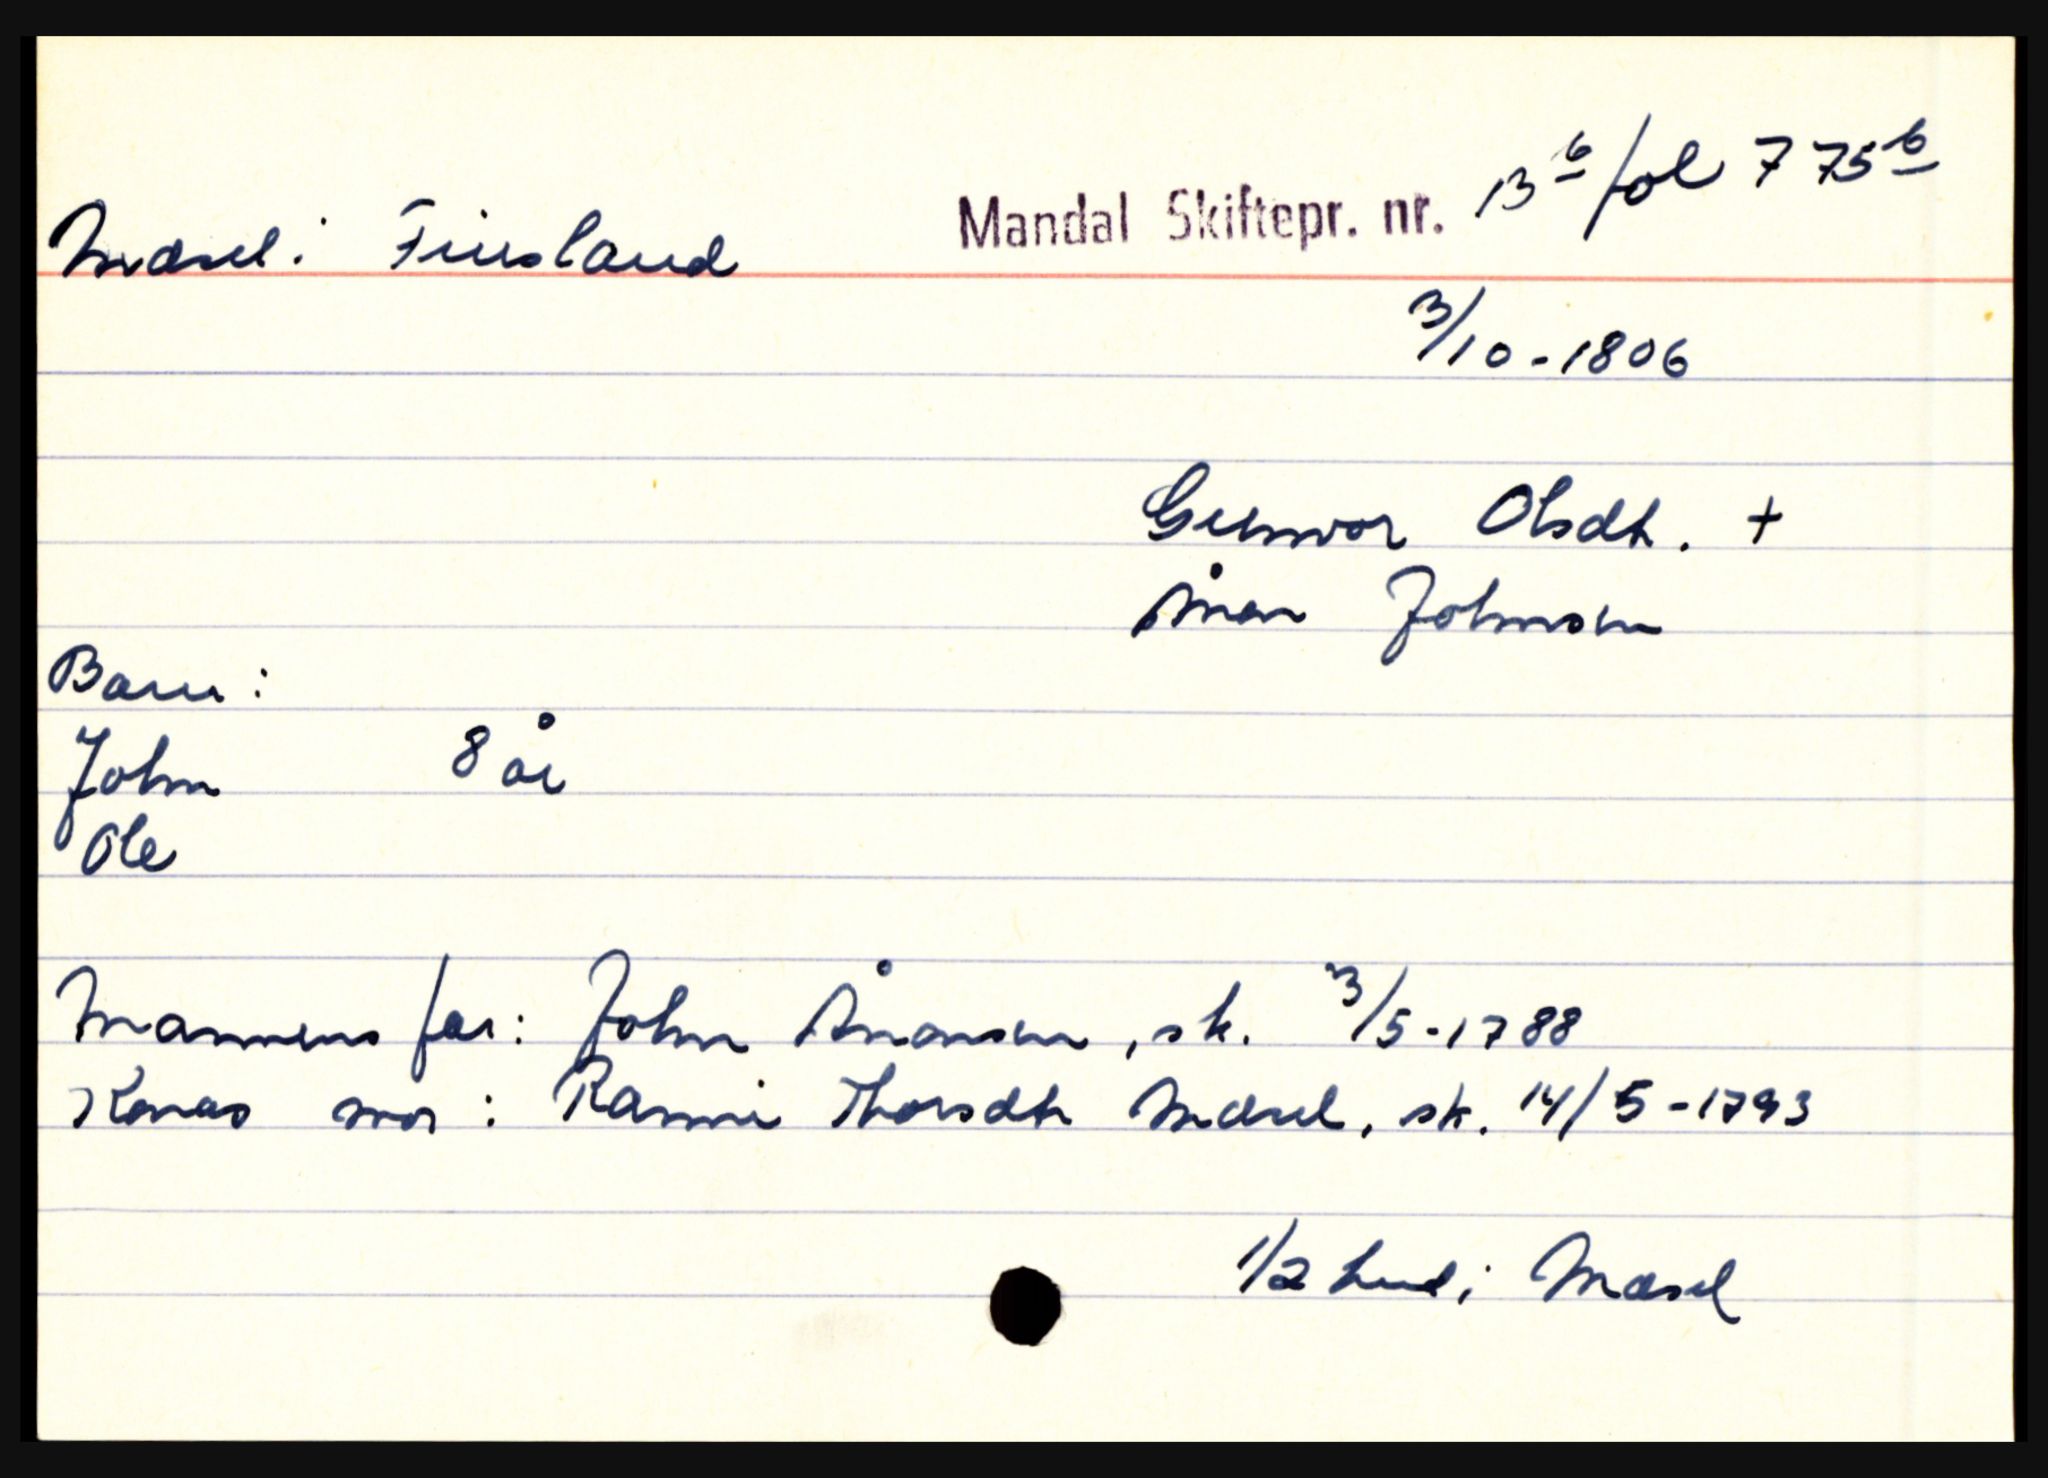 Mandal Skiftepr. nr. 13 b fol 775 b
Mæsel i Finsland
3/10-1806
Gunvor Olsdtr. +
Ånen Johnsen
Barn:
John 8 år
Ole
Mannens far: John Ånonsen, sk. 3/5-1788
Konas mor: Ranni Thorsdtr Mæsel, sk. 14/5-1793
1/2 hud i Mæsel